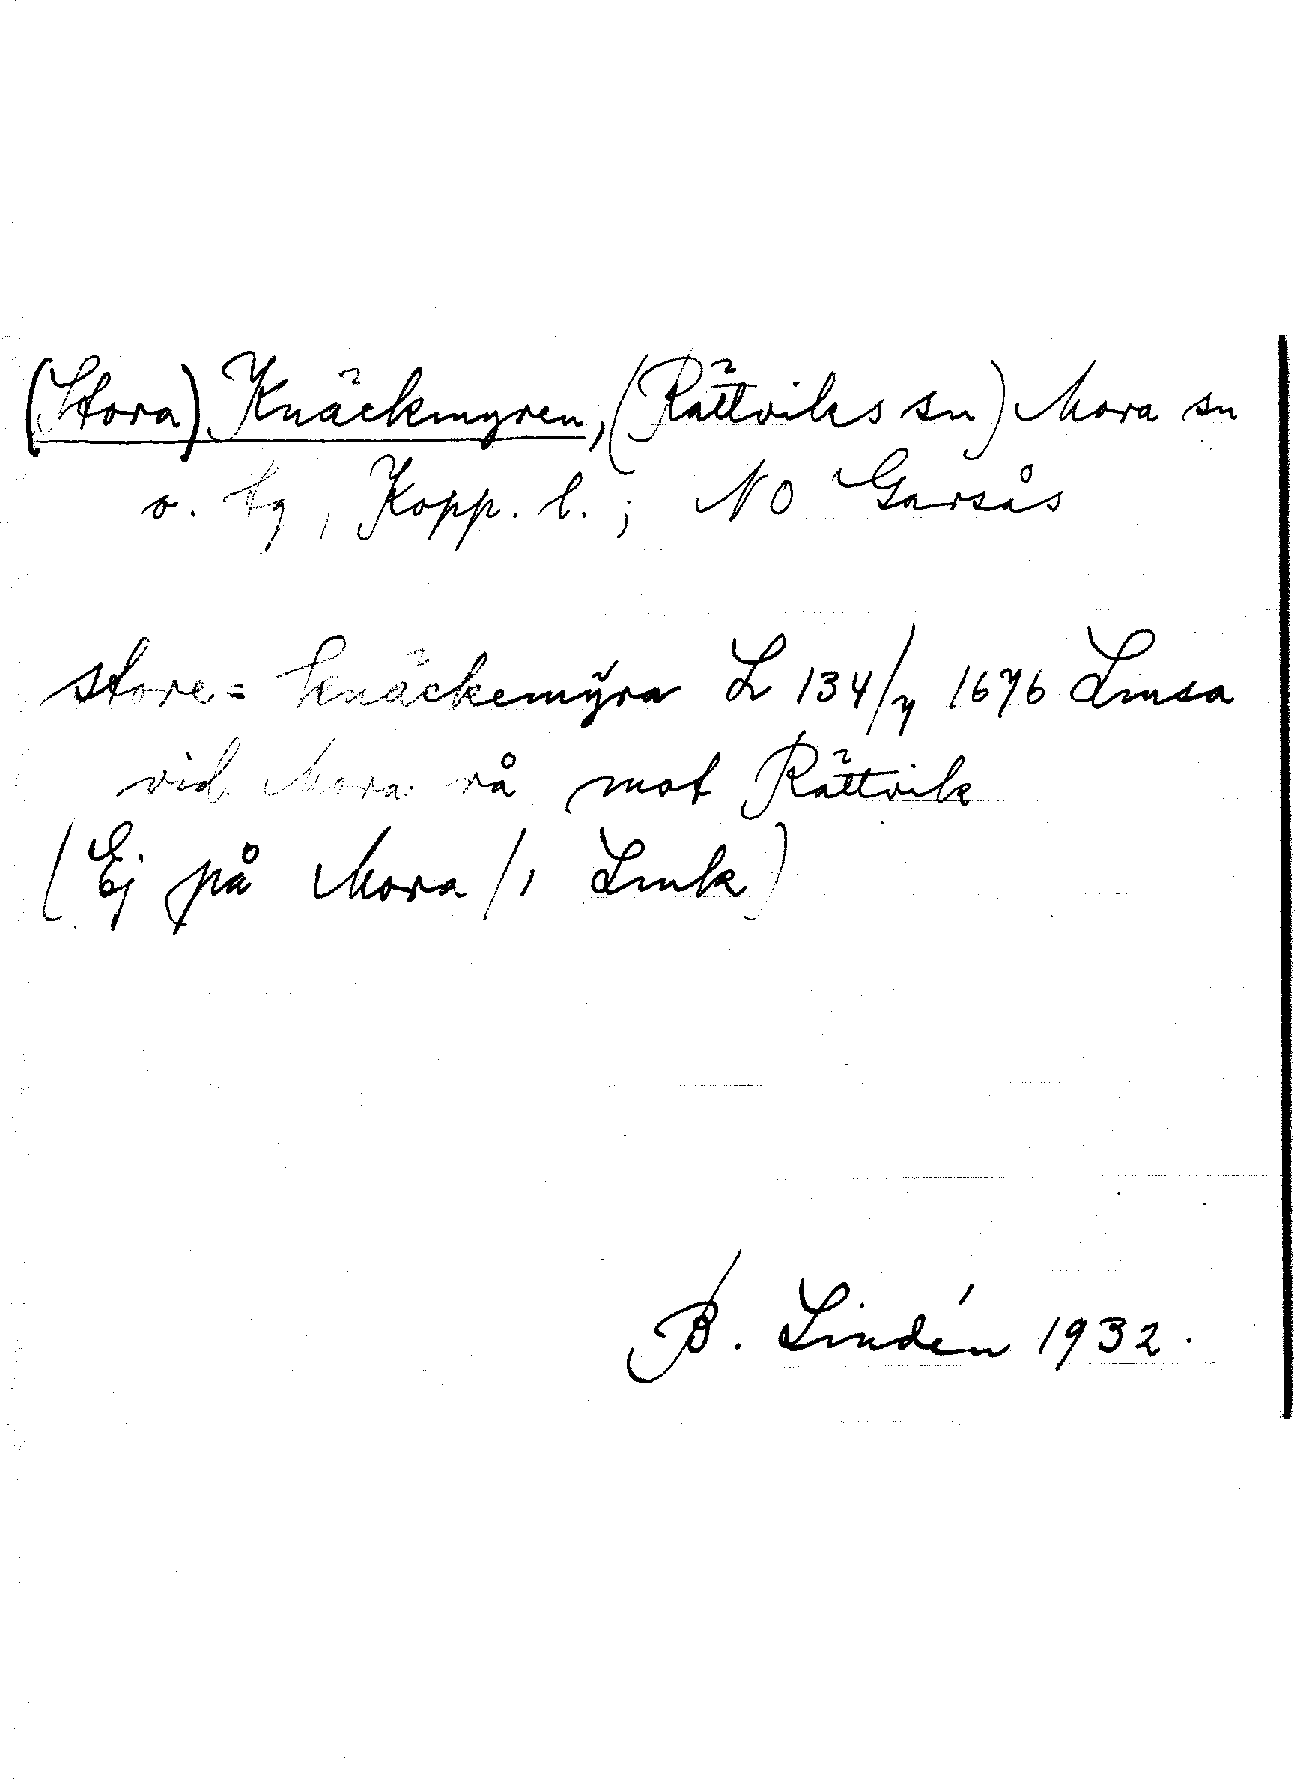 (Stora) Knäckmyren, (Rättviks sn) Mora sn
o. tg, Kopp. l.; NO Garsås
store= knäckemÿra L 134/7 1676 Lmsa
vid Mora rå mot Rättvik
(Ej på Mora /1 Lmk)
B. Lindén 1932.